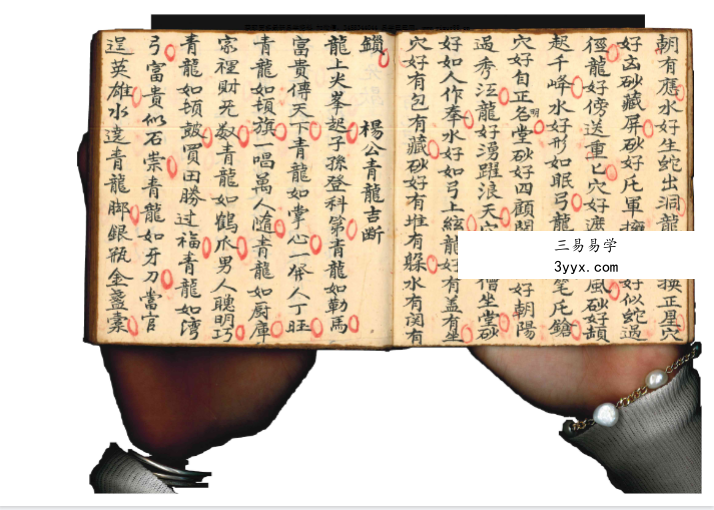 朝有鴈水好生蛇出洞龍
換正星穴
好凸砂藏屏砂好氏軍擁
好似蛇過
徑龍好傍送重匕穴好遮
風砂好頡
起千峰水好形如眠弓龍
笔氏鎗
穴好自正名堂砂好四顧
好朝陽
過秀江龍好湧躍浪天穴
僧坐堂砂
好如人作奉水好如弓上絃龍好有盖有坐
穴好有包有藏砂好有堆有躲水有関有
鎖
楊公青龍吉断
龍上尖峯起子孫登科第青龍如勒馬
富貴傳天下青龍如掌心一癸人丁旺
青龍如頓旗一唱萬人隨青龍如厨庫
家裡財无数青龍如鶴爪男人聰明巧
青龍如頓鼓買田勝过福青龍如湾
弓富貴似石崇青龍如牙刀當官
逞英雄水遶青龍脚銀瓶金盞囊
三易易学
3yyx.com